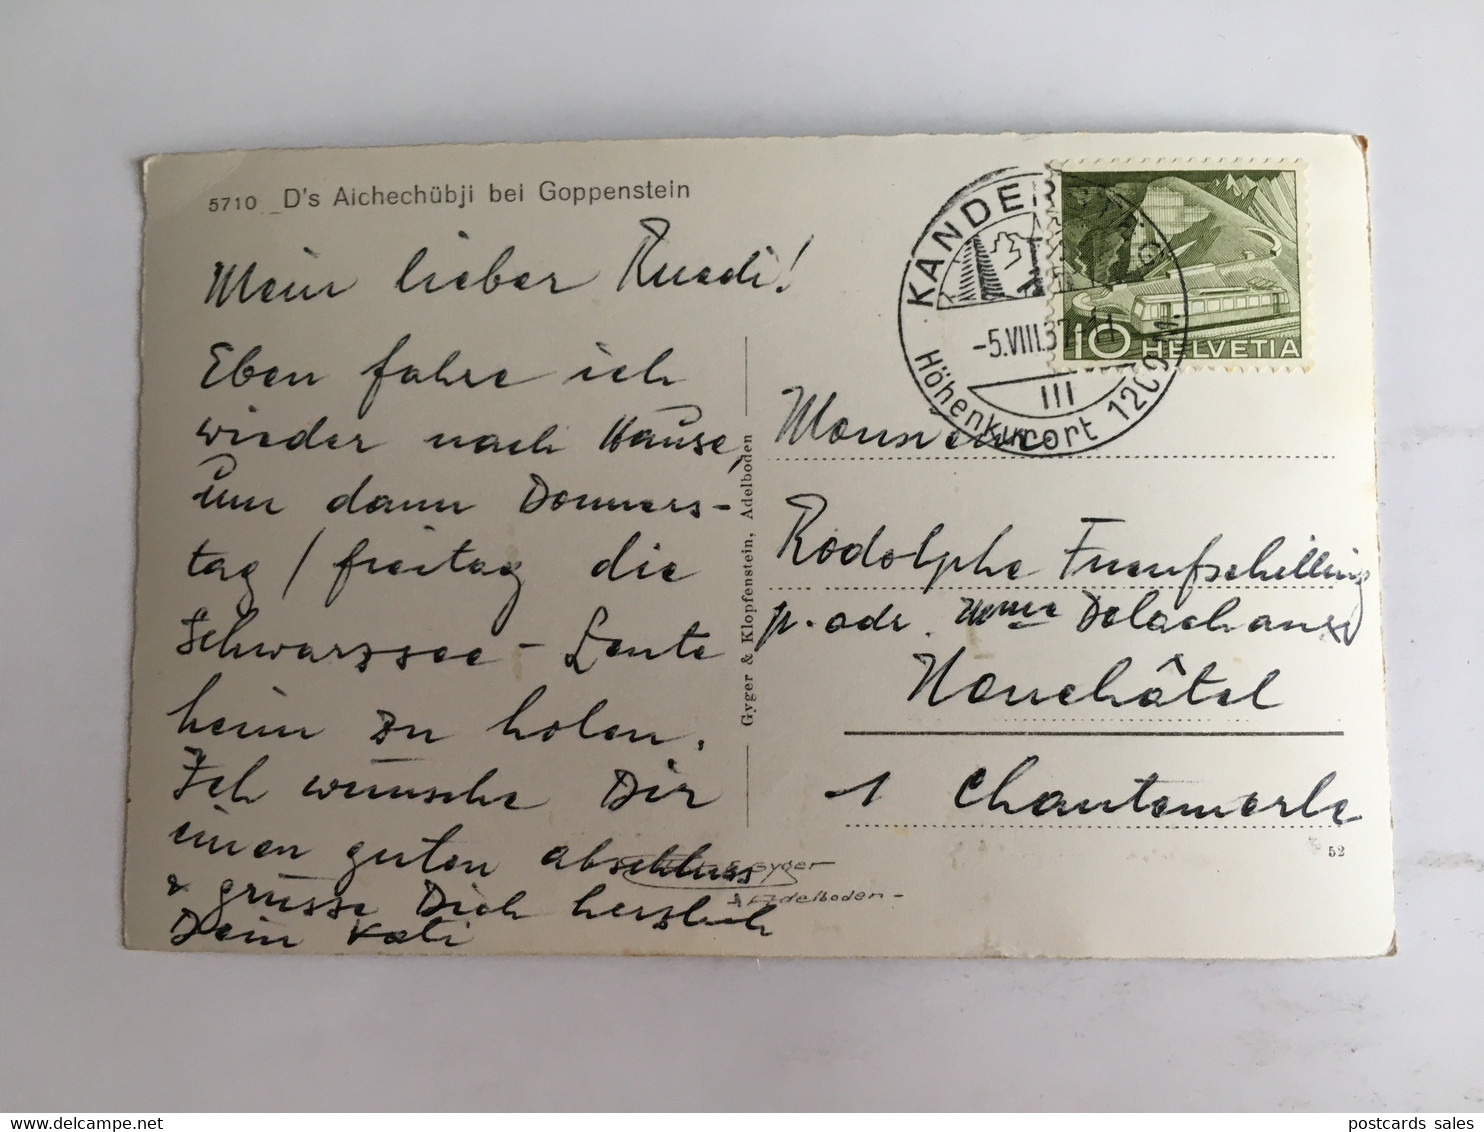 5710 D's Aichechübji bei Goppenstein
Mein lieber Ruedi!
Eben fahre ich
wieder nach Hause,
um dann Donners-
tag / freitag die
Schwarzsee - Leute
heim zu holen.
Ich wünsche Dir
einen guten abschluss
& grüsse Dich herzlich
Dein Kati
Gyger & Klopfenstein, Adelboden
E. Gyger
Adelboden -
KANDERSTEG
-5.VIII.57.-11
III
Höhenkurort 1200 M.
10 HELVETIA
Monsieur
Rodolphe Fuenfschilling
p. adr. Mme Delachaux
Neuchâtel
1 Chantemerle
52
postcards sales